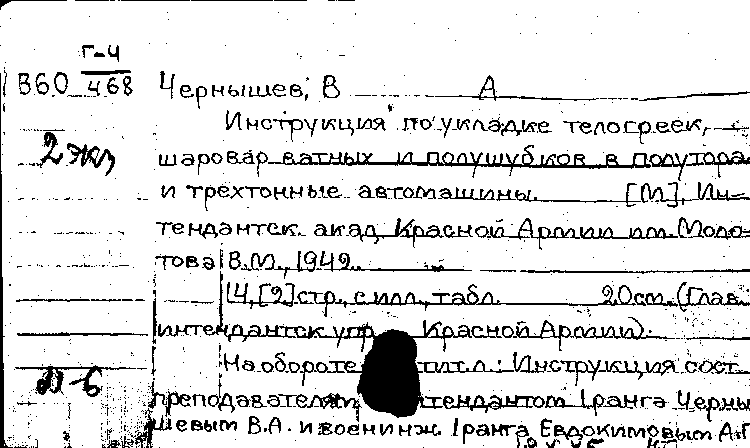 Г-4
В60 468 Чернышев, В А
Инструкция по укладке телогреек,
2 экз
шаровар ватных и полушубков в полутора
и трехтонные автомашины. [М], Ин-
тендантск. акад. Красной Армии им. Моло-
това В.М., 1942.
14,[2]стр., с илл., табл. 20см. (Глав.
интендантск упр Красной Армии).
На обороте тит.л.: Инструкция сост
преподавателям интендантом 1ранга Черны
шевым В.А. и военинж. 1ранга Евдокимовым А.Г